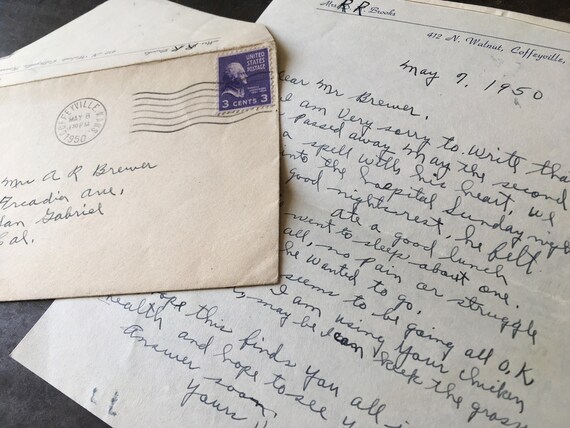 Mrs R R Brooks
412 N. Walnut, Coffeyville,
May 7, 1950
Dear Mr Brewer.
I am very sorry to write tha
passed away May the second
a spell with his heart, we
into the hospital Sunday night
good nights rest, he felt
ate a good lunch
went to sleep about one.
all, no pain or struggle
he wanted to go.
seems to be going all O.K
I am using your chicken
may be I can keek the grass
hope this finds you all i
health and hope to see y
Answer soon.
yours
UNITED
STATES
POSTAGE
3 CENTS 3
COFFEYVILLE
MAY 8
PM
1950
KANS
Mr A R Brewer
Arcadia Ave,
San Gabriel
Cal.